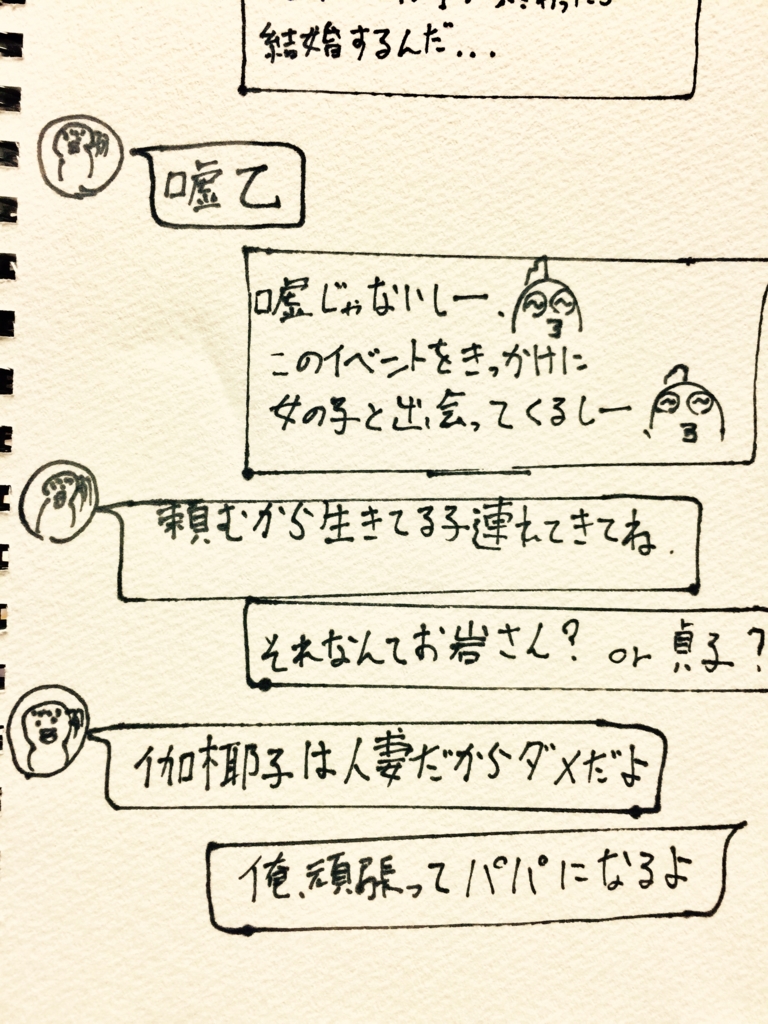 結婚するんだ...
嘘乙
嘘じゃないしー、
このイベントをきっかけに
女の子と出会ってくるしー
頼むから生きてる子連れてきてね.
それなんてお岩さん? or 貞子?
伽椰子は人妻だからダメだよ
俺、頑張ってパパになるよ